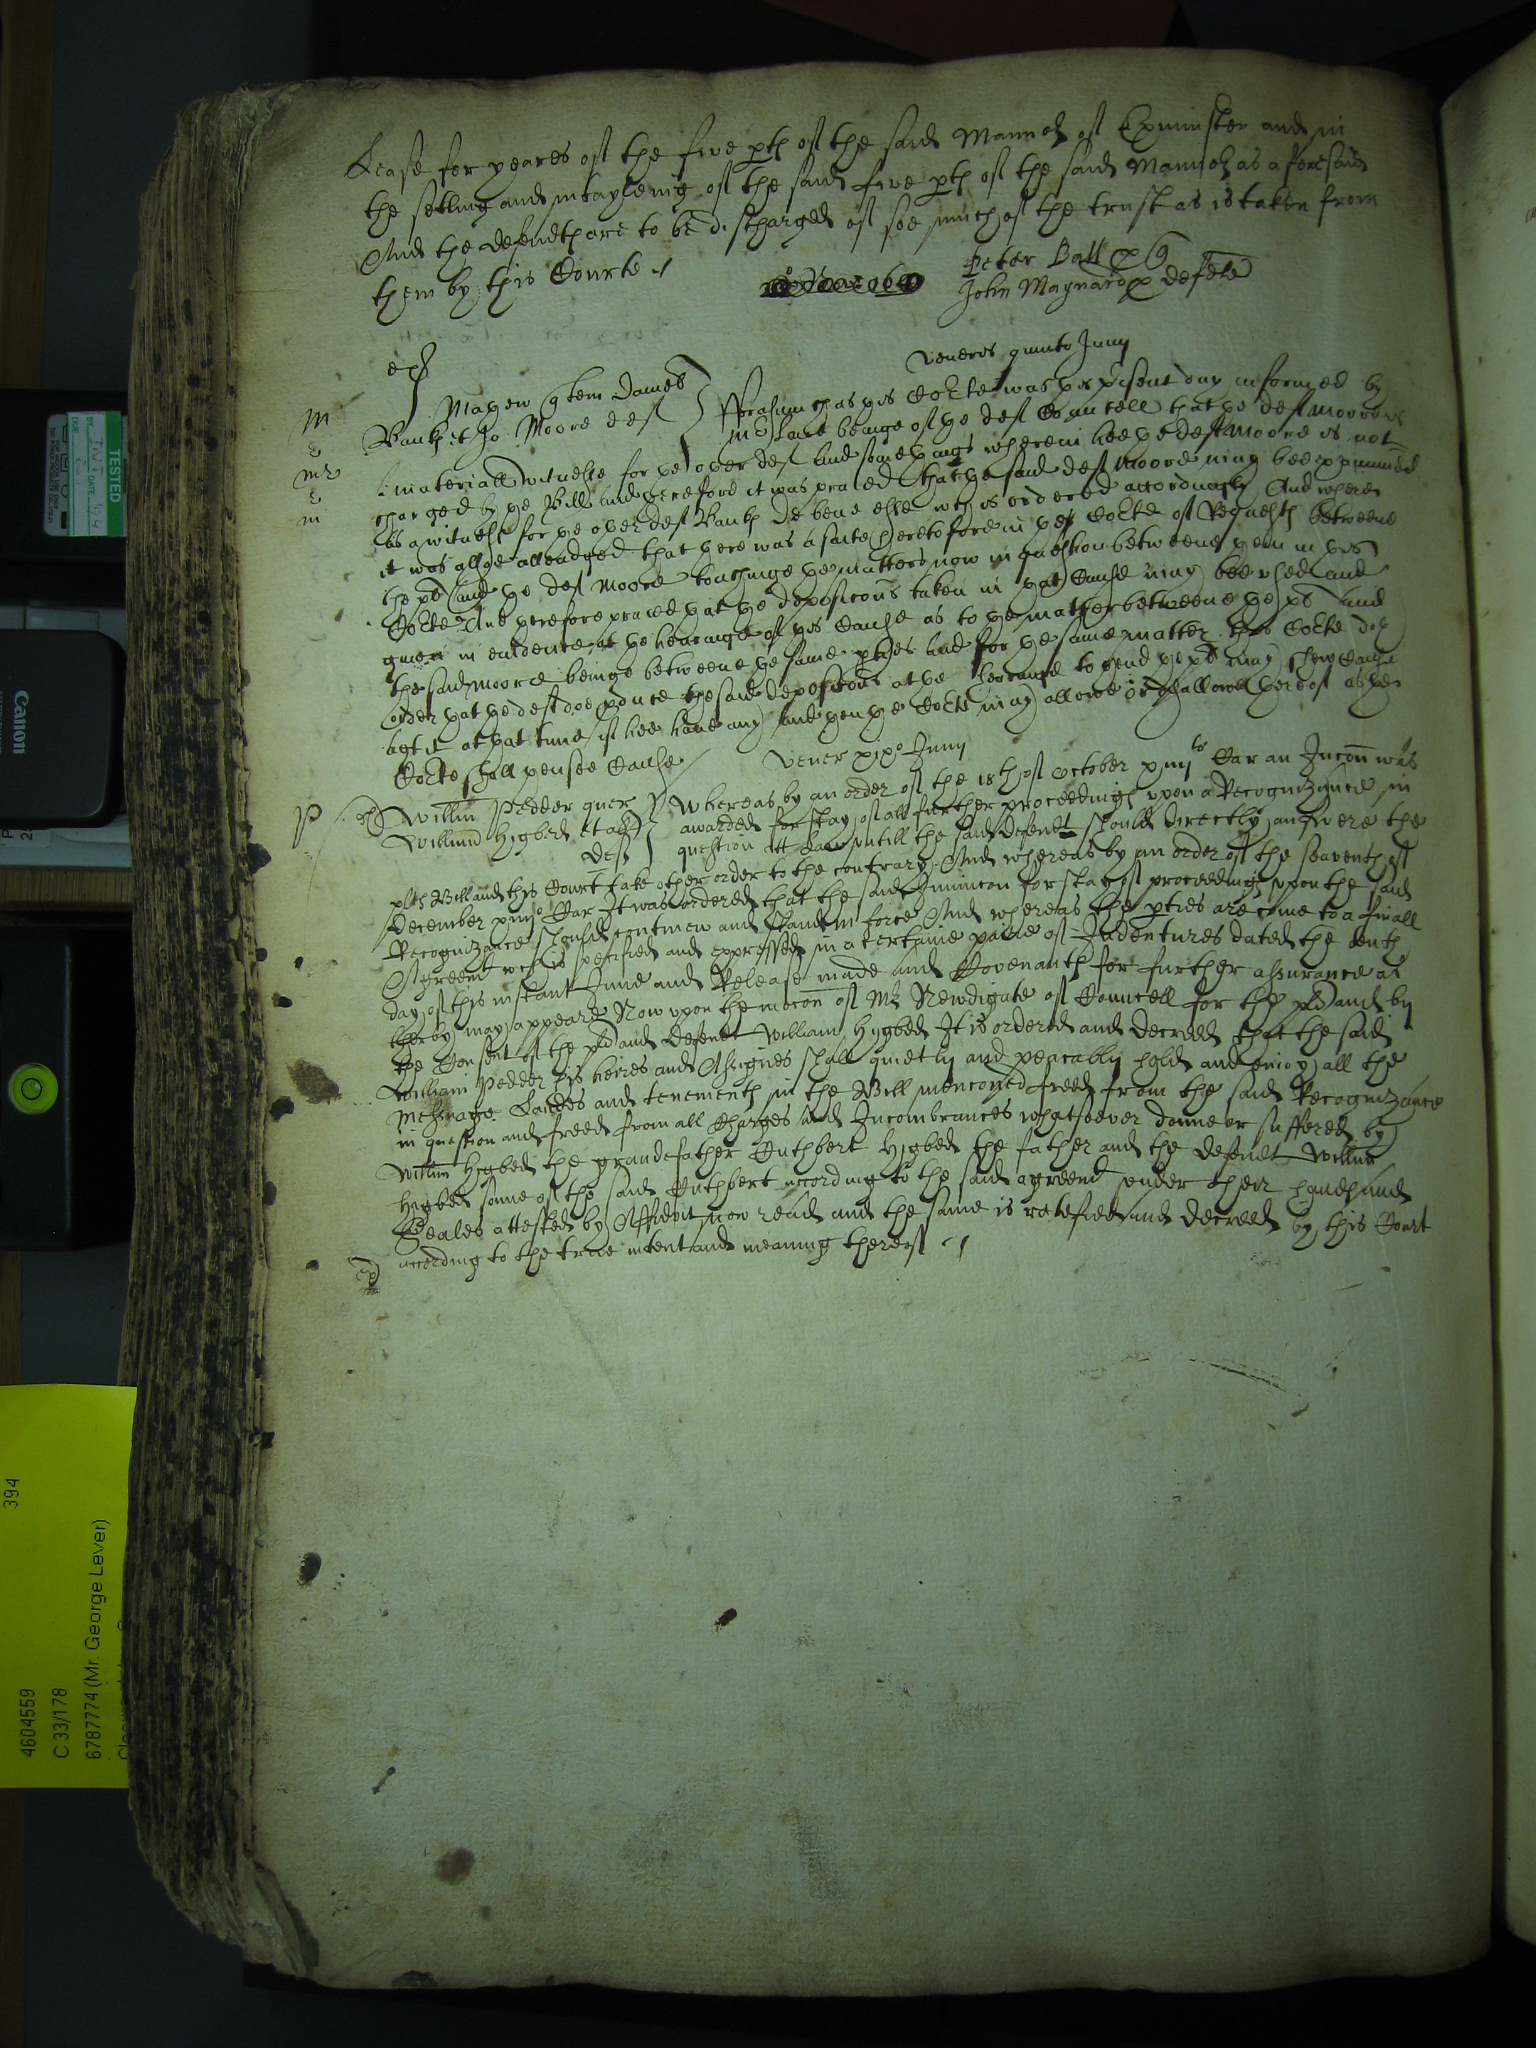 Lease for yeares of the five pts of the said Mannor of Exminster and in
the setling and intayleing of the said five pts of the said Mannor as aforesaid
And the defendts are to be discharged of soe much of the trust as is taken from
them by this Courte
Peter Ball p q
John Maynard p defte
Veneris quinto Junij
Mayew quer Dames
Bankes et Jo: Moore def
Forasmuch as this Corte was this psent day informed by
beinge of the def Councell that the def Moore is
a materiall witnesse for the other def and some things wherein hee the def Moore is not
charged by the Bill and therefore it was praied that the said def Moore may bee examined
as a witness for the other def Banks de bene esse wch is ordered accordingly And where
it was allsoe alleadged that there was a suite heretofore in the Corte of Requests betweene
the plt and the def Moore touchinge the matters now in question betweene them in this
Corte And therefore praied that the deposicons taken in that Cause may bee used and
given in evidence at the hearinge of this Cause as to the matter betweene the plt and
the said Moore beinge betweene the same pties and for the same matter this Corte doth
order that the deft doe pduce the said deposicons at the hearinge to thend the plt may shew Cause
agt it at that time if hee have any and then the Corte may allowe or disallowe thereof as the
Corte shall then see Cause
Vener xixo Junij
Willm Pedder quer
Willmu Higbed et al
def
Whereas by an order of the 18th of October xiiijto Car an Incon was
awarded for stay of all further proceedings upon a Recognizance in
question att Law untill the said defendt should directly answere the
plts Bill and this Court take other order to the contrary And whereas by an order of the seaventh of
December xiiijo Car It was ordered that the said Iniuncon for stay of proceedings upon the said
Recognizance should continew and stand in force And whereas the pties are come to a finall
Agreemt wch is pecified and expressed in a certaine paire of Indentures dated the tenth
day of this instant June and Release made and Covenants for further assurance as
therby may appeare Now upon the mocon of Mr Newdigate of Councell for the plt and by
the Consent of the plt and Defendt William Higbed It is ordered and decreed that the said
William Pedder his heires and Assignes shall quietly and peacably hold and enioy all the
Messuage Landes and tenements in the Bill menconed freed from the said Recognizance
in question and freed from all Charges and Incombrances whatsoever donne or suffered by
Willm Higbed the grandfather Cuthbert Higbed the father and the defendt Willm
Higbed sonne of the said Cuthbert according to the said agreemt under their hands and
Seales attested by Affidavit now read and the same is ratefied and decreed by this Court
according to the true intent and meaning thereof
TESTED
BY
INIT
DATE
DUE
Canon
394
4604559
C 33/178
6787774 (Mr. George Lever)